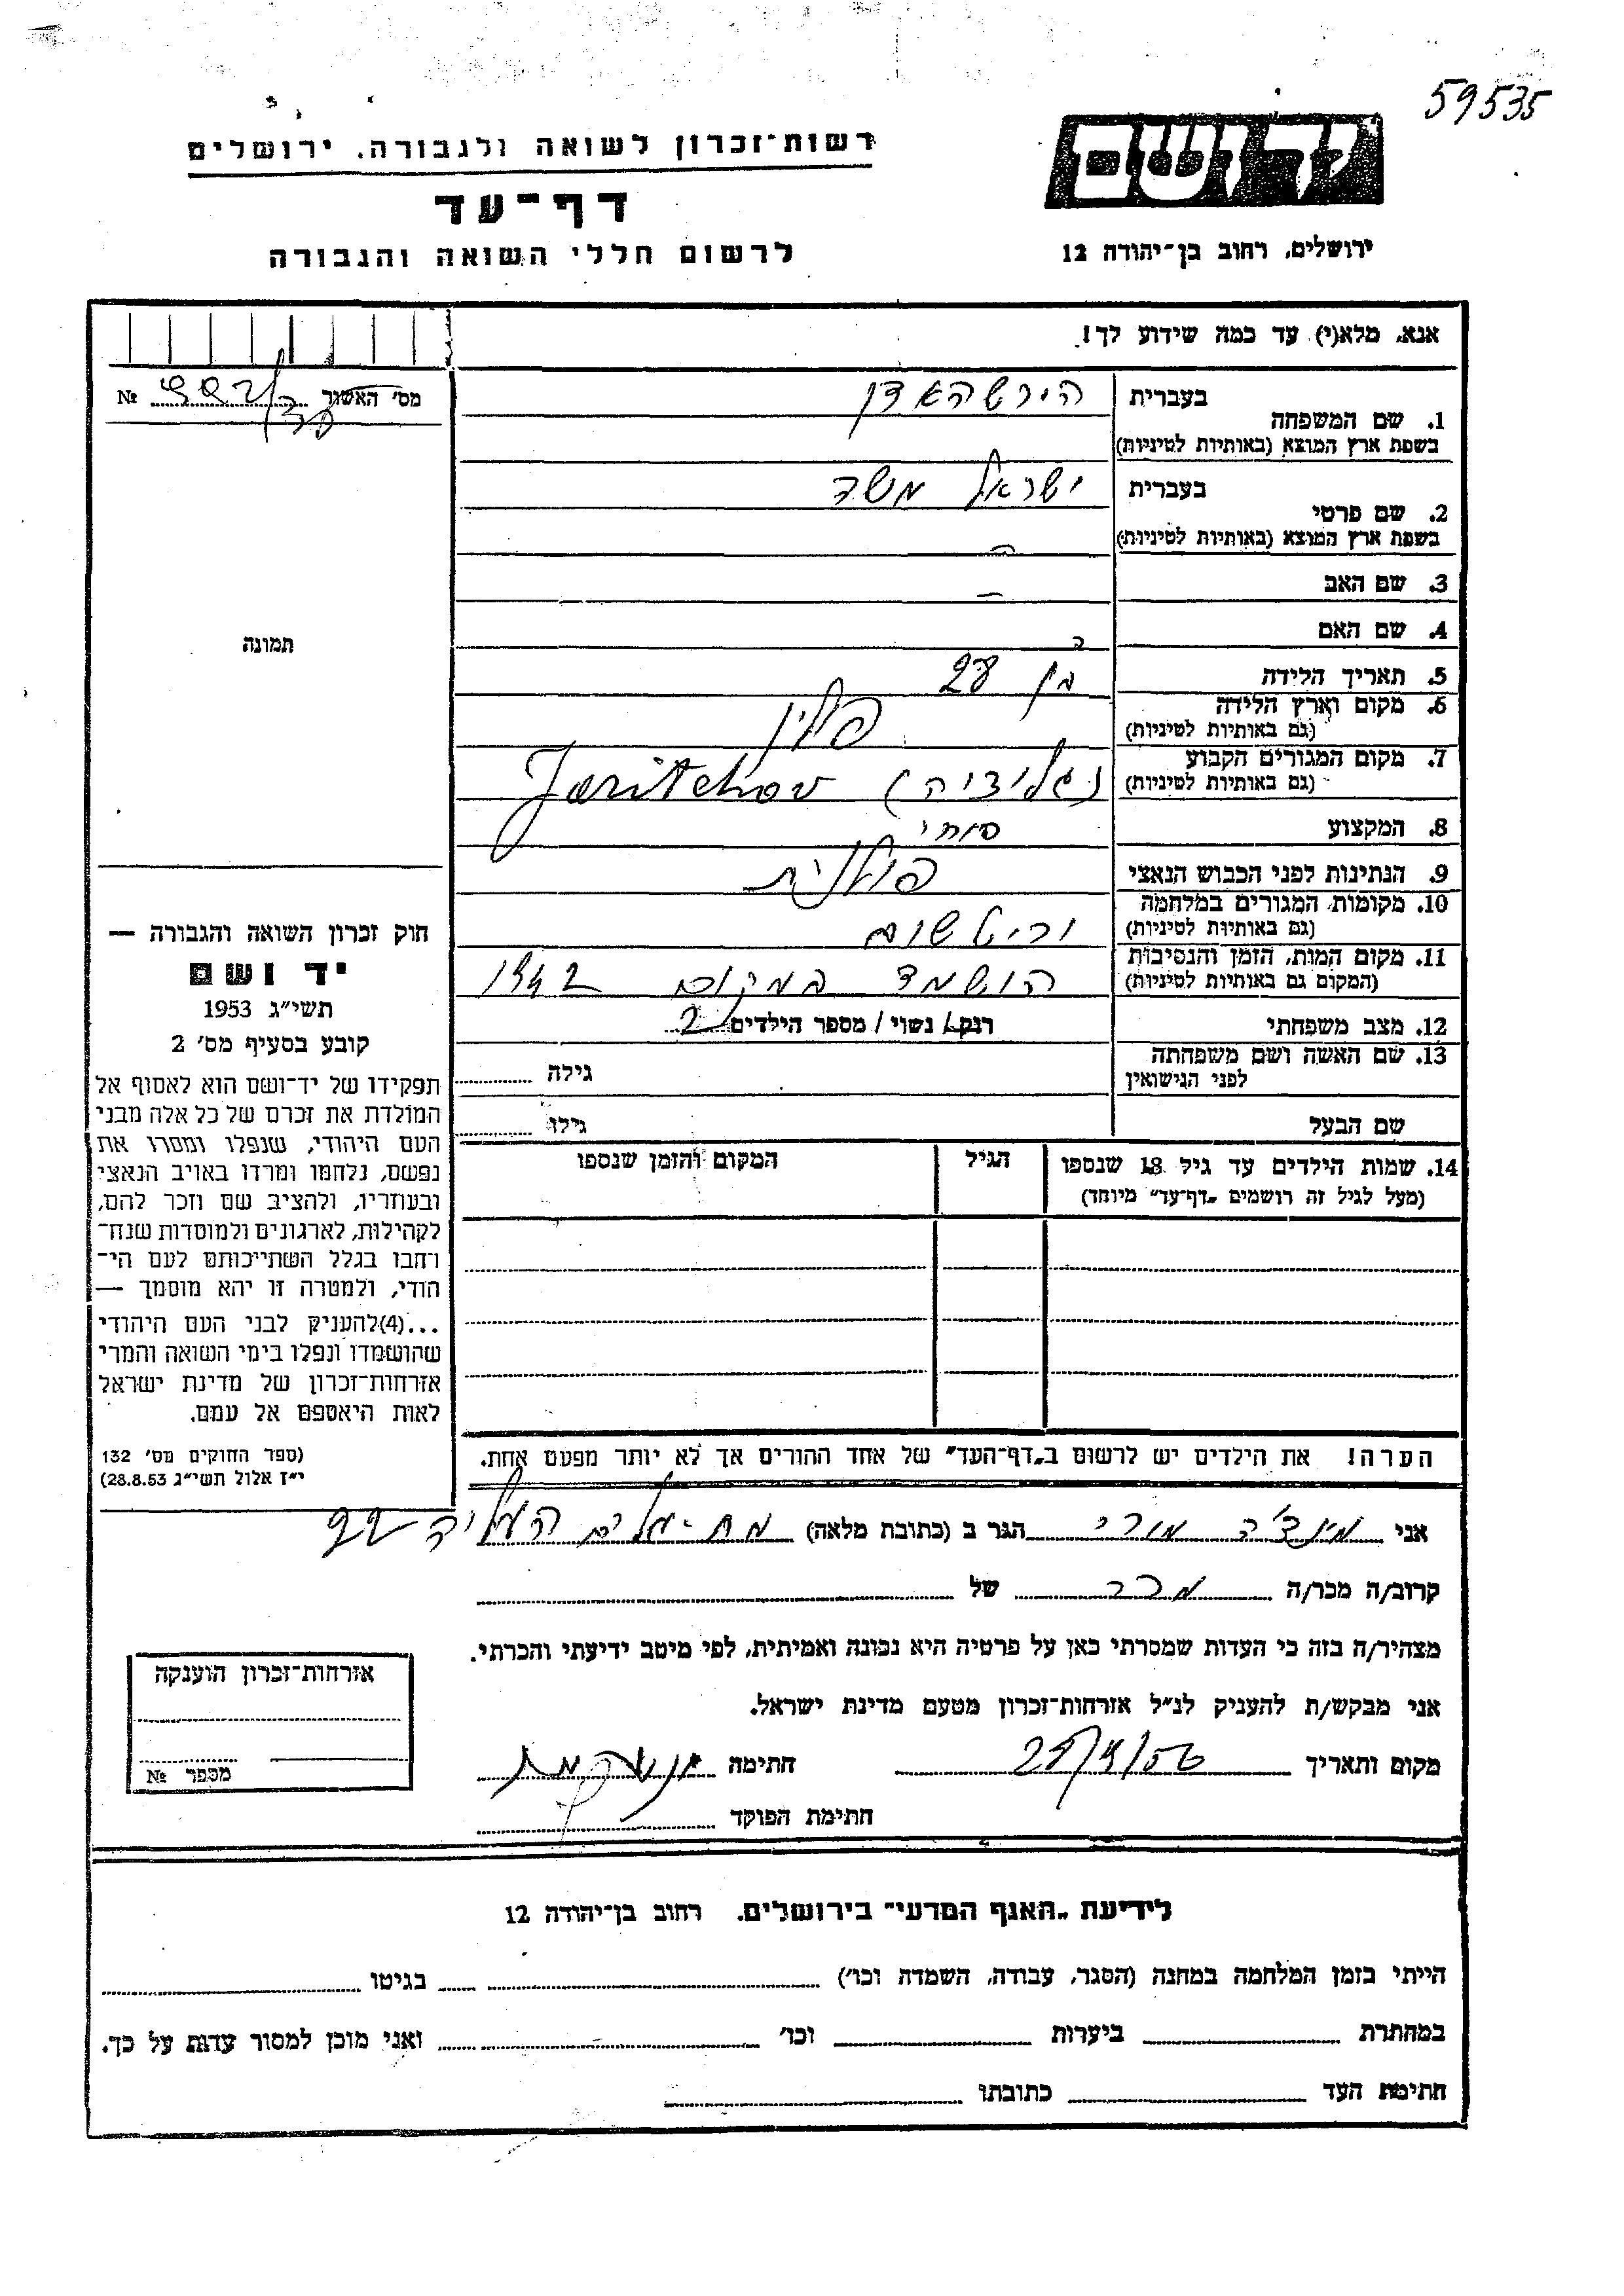 59535
יד ושם
רשות־זכרון לשואה ולגבורה. ירושלים
דף־עד
ירושלים, רחוב בן־יהודה 12
לרשום חללי השואה והגבורה
אנא, מלא(י) עד כמה שידוע לך!
מס' האשור № 
1. שם המשפחה בעברית הירשהאדן
בשפת ארץ המוצא (באותיות לטיניות)
2. שם פרטי בעברית ישראל משה
בשפת ארץ המוצא (באותיות לטיניות)
3. שם האב –
4. שם האם
5. תאריך הלידה בן 28
6. מקום וארץ הלידה פולין
(גם באותיות לטיניות)
7. מקום המגורים הקבוע (גליציה) Jaritchov
(גם באותיות לטיניות)
8. המקצוע סוחר
9. הנתינות לפני הכבוש הנאצי פולנית
10. מקומות המגורים במלחמה
(גם באותיות לטיניות)
11. מקום המות, הזמן והנסיבות הושמד במקום 1942
(המקום גם באותיות לטיניות)
12. מצב משפחתי רווק / נשוי / מספר הילדים 2
13. שם האשה ושם משפחתה גילה
לפני הנישואין
שם הבעל גילו
14. שמות הילדים עד גיל 18 שנספו הגיל המקום והזמן שנספו
(מעל לגיל זה רושמים „דף־עד" מיוחד)
הערה! את הילדים יש לרשום ב„דף־העד" של אחד ההורים אך לא יותר מפעם אחת.
תמונה
חוק זכרון השואה והגבורה —
יד ושם
תשי"ג 1953
קובע בסעיף מס' 2
תפקידו של יד־ושם הוא לאסוף אל
המולדת את זכרם של כל אלה מבני
העם היהודי, שנפלו ומסרו את
נפשם, נלחמו ומרדו באויב הנאצי
ובעוזריו, ולהציב שם וזכר להם,
לקהילות, לארגונים ולמוסדות שנח־
רחבו בגלל השתייכותם לעם הי־
הודי, ולמטרה זו יהא מוסמך —
...(4)להעניק לבני העם היהודי
שהושמדו ונפלו בימי השואה והמרי
אזרחות־זכרון של מדינת ישראל
לאות היאספם אל עמם.
(ספר החוקים מס' 132
י"ז אלול תשי"ג 28.8.53)
אני הגר ב (כתובת מלאה)
קרוב/ה מכר/ה מכר של
מצהיר/ה בזה כי העדות שמסרתי כאן על פרטיה היא נכונה ואמיתית, לפי מיטב ידיעתי והכרתי.
אני מבקש/ת להעניק לנ"ל אזרחות־זכרון מטעם מדינת ישראל.
מקום ותאריך חתימה
חתימת הפוקד
אזרחות־זכרון הוענקה
מספר №
לידיעת „האגף המדעי" בירושלים. רחוב בן־יהודה 12
הייתי בזמן המלחמה במחנה (הסגר, עבודה, השמדה וכו') בגיטו
במחתרת ביערות וכו' ואני מוכן למסור עדות על כך.
חתימת העד כתובתו